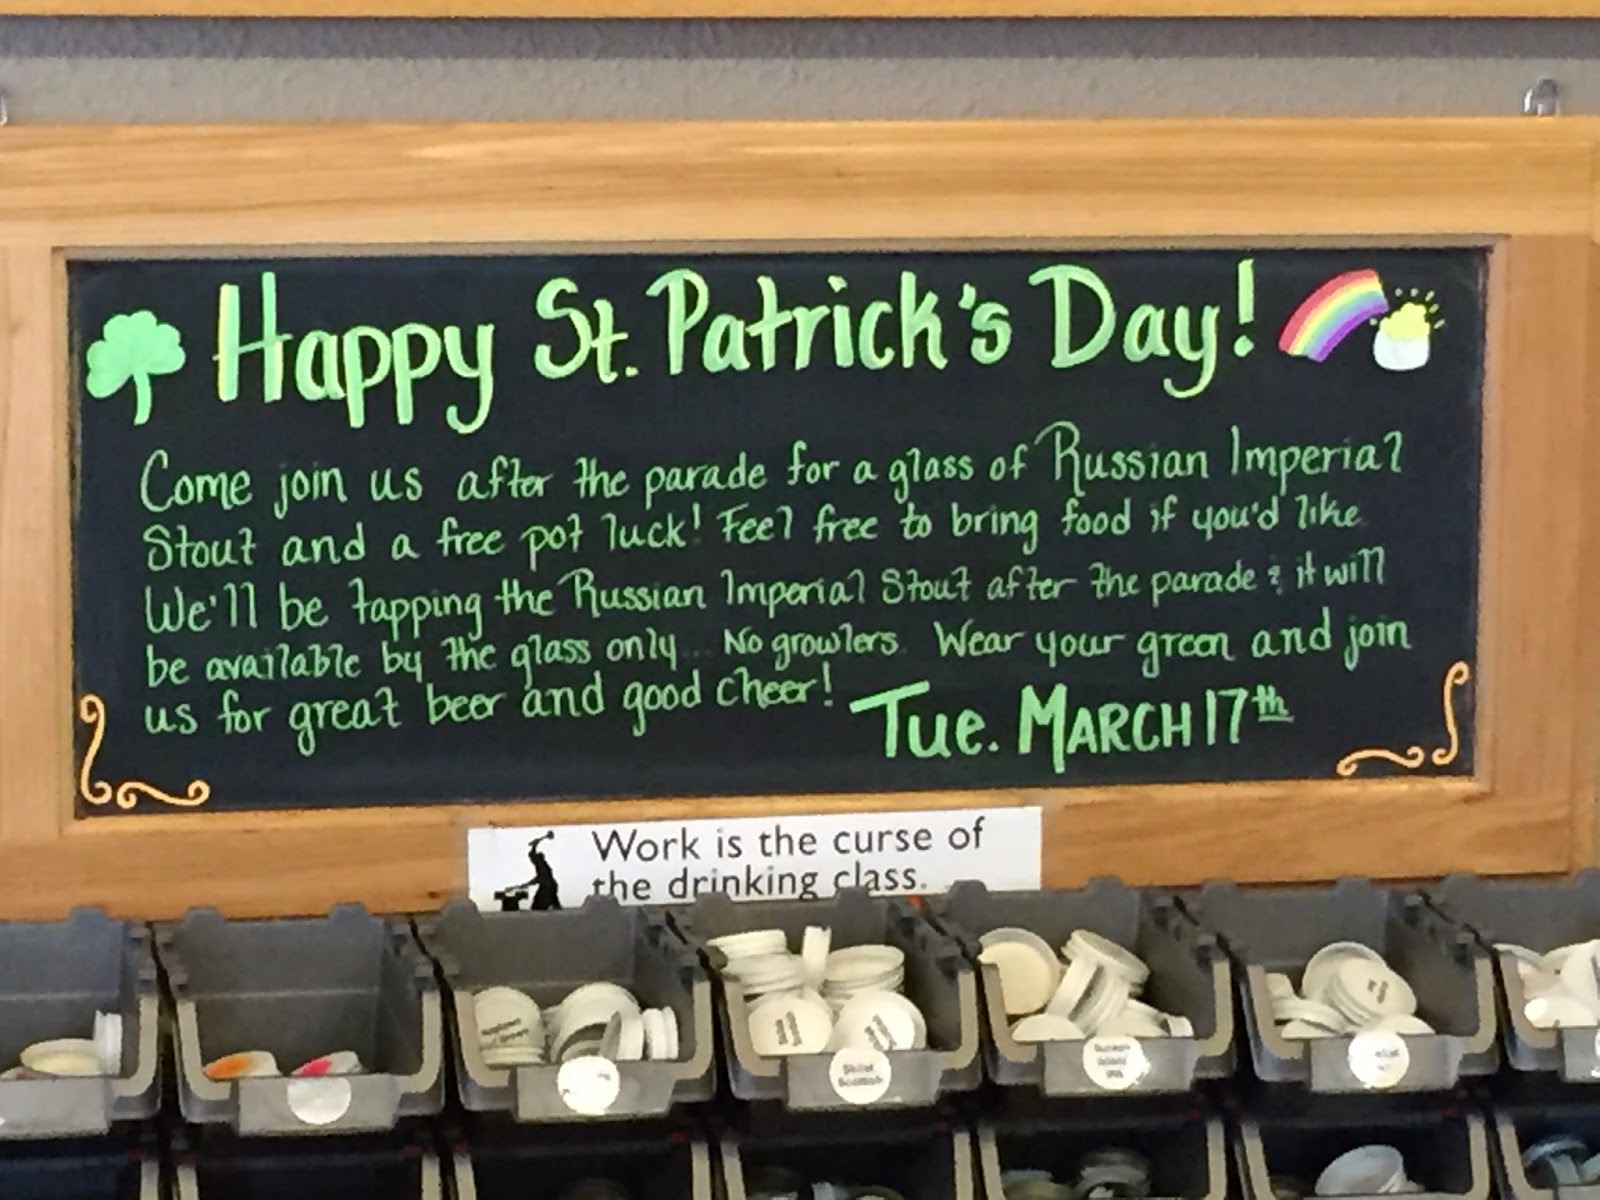 Happy St. Patrick's Day!
Come join us after the parade for a glass of Russian Imperial
Stout and a free pot luck! Feel free to bring food if you'd like
We'll be tapping the Russian Imperial Stout after the parade & it will
be available by the glass only... No growlers. Wear your green and join
us for great beer and good cheer!
Tue. MARCH 17th
Work is the curse of
the drinking class.